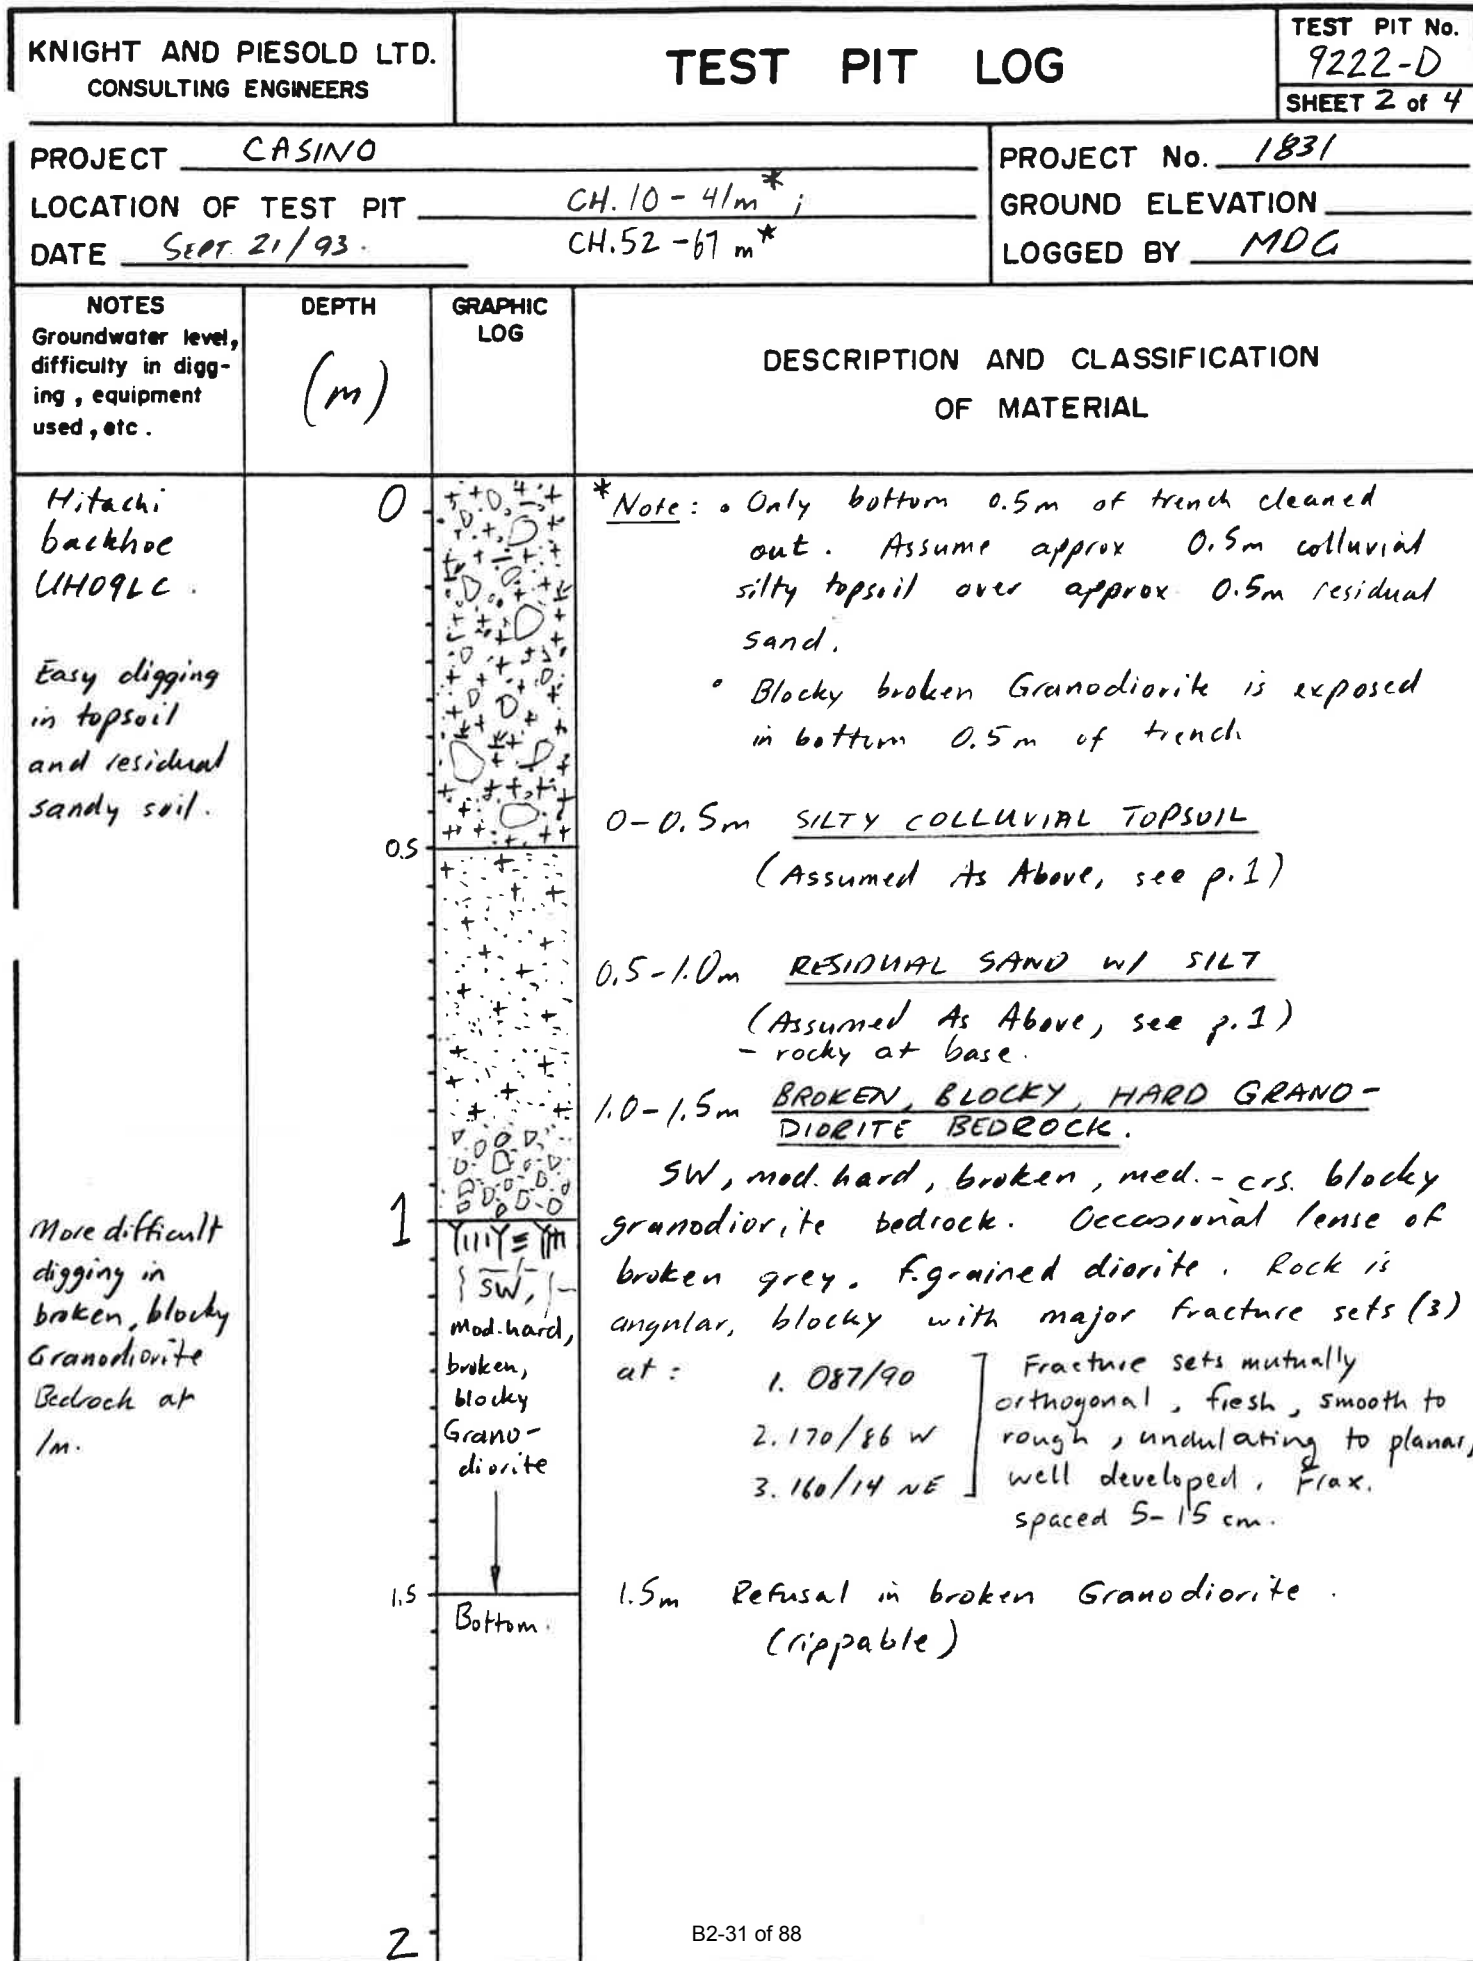 KNIGHT AND PIESOLD LTD.
CONSULTING ENGINEERS
TEST PIT LOG
TEST PIT No.
9222-D
SHEET 2 of 4
PROJECT CASINO
LOCATION OF TEST PIT CH. 10 - 41m* ;
DATE SEPT. 21/93. CH. 52 - 67 m*
PROJECT No. 1831
GROUND ELEVATION
LOGGED BY MDG
NOTES
Groundwater level,
difficulty in digg-
ing, equipment
used, etc.
DEPTH
(m)
GRAPHIC
LOG
DESCRIPTION AND CLASSIFICATION
OF MATERIAL
Hitachi
backhoe
UH09LC.
Easy digging
in topsoil
and residual
sandy soil.
More difficult
digging in
broken, blocky
Granodiorite
Bedrock at
1m.
0
0.5
1
1.5
2
SW,
Mod. hard,
broken,
blocky
Grano-
diorite
Bottom.
*Note: • Only bottom 0.5m of trench cleaned
out. Assume approx 0.5m colluvial
silty topsoil over approx 0.5m residual
sand.
• Blocky broken Granodiorite is exposed
in bottom 0.5m of trench
0-0.5m SILTY COLLUVIAL TOPSOIL
(Assumed As Above, see p.1)
0.5-1.0m RESIDUAL SAND W/ SILT
(Assumed As Above, see p.1)
- rocky at base.
1.0-1.5m BROKEN, BLOCKY, HARD GRANO-
DIORITE BEDROCK.
SW, mod. hard, broken, med. - crs. blocky
granodiorite bedrock. Occasional lense of
broken grey. f.grained diorite. Rock is
angular, blocky with major fracture sets (3)
at: 1. 087/90
2. 170/86 W
3. 160/14 NE
Fracture sets mutually
orthogonal, fresh, smooth to
rough, undulating to planar,
well developed. Frax.
spaced 5-15 cm.
1.5m Refusal in broken Granodiorite.
(rippable)
B2-31 of 88